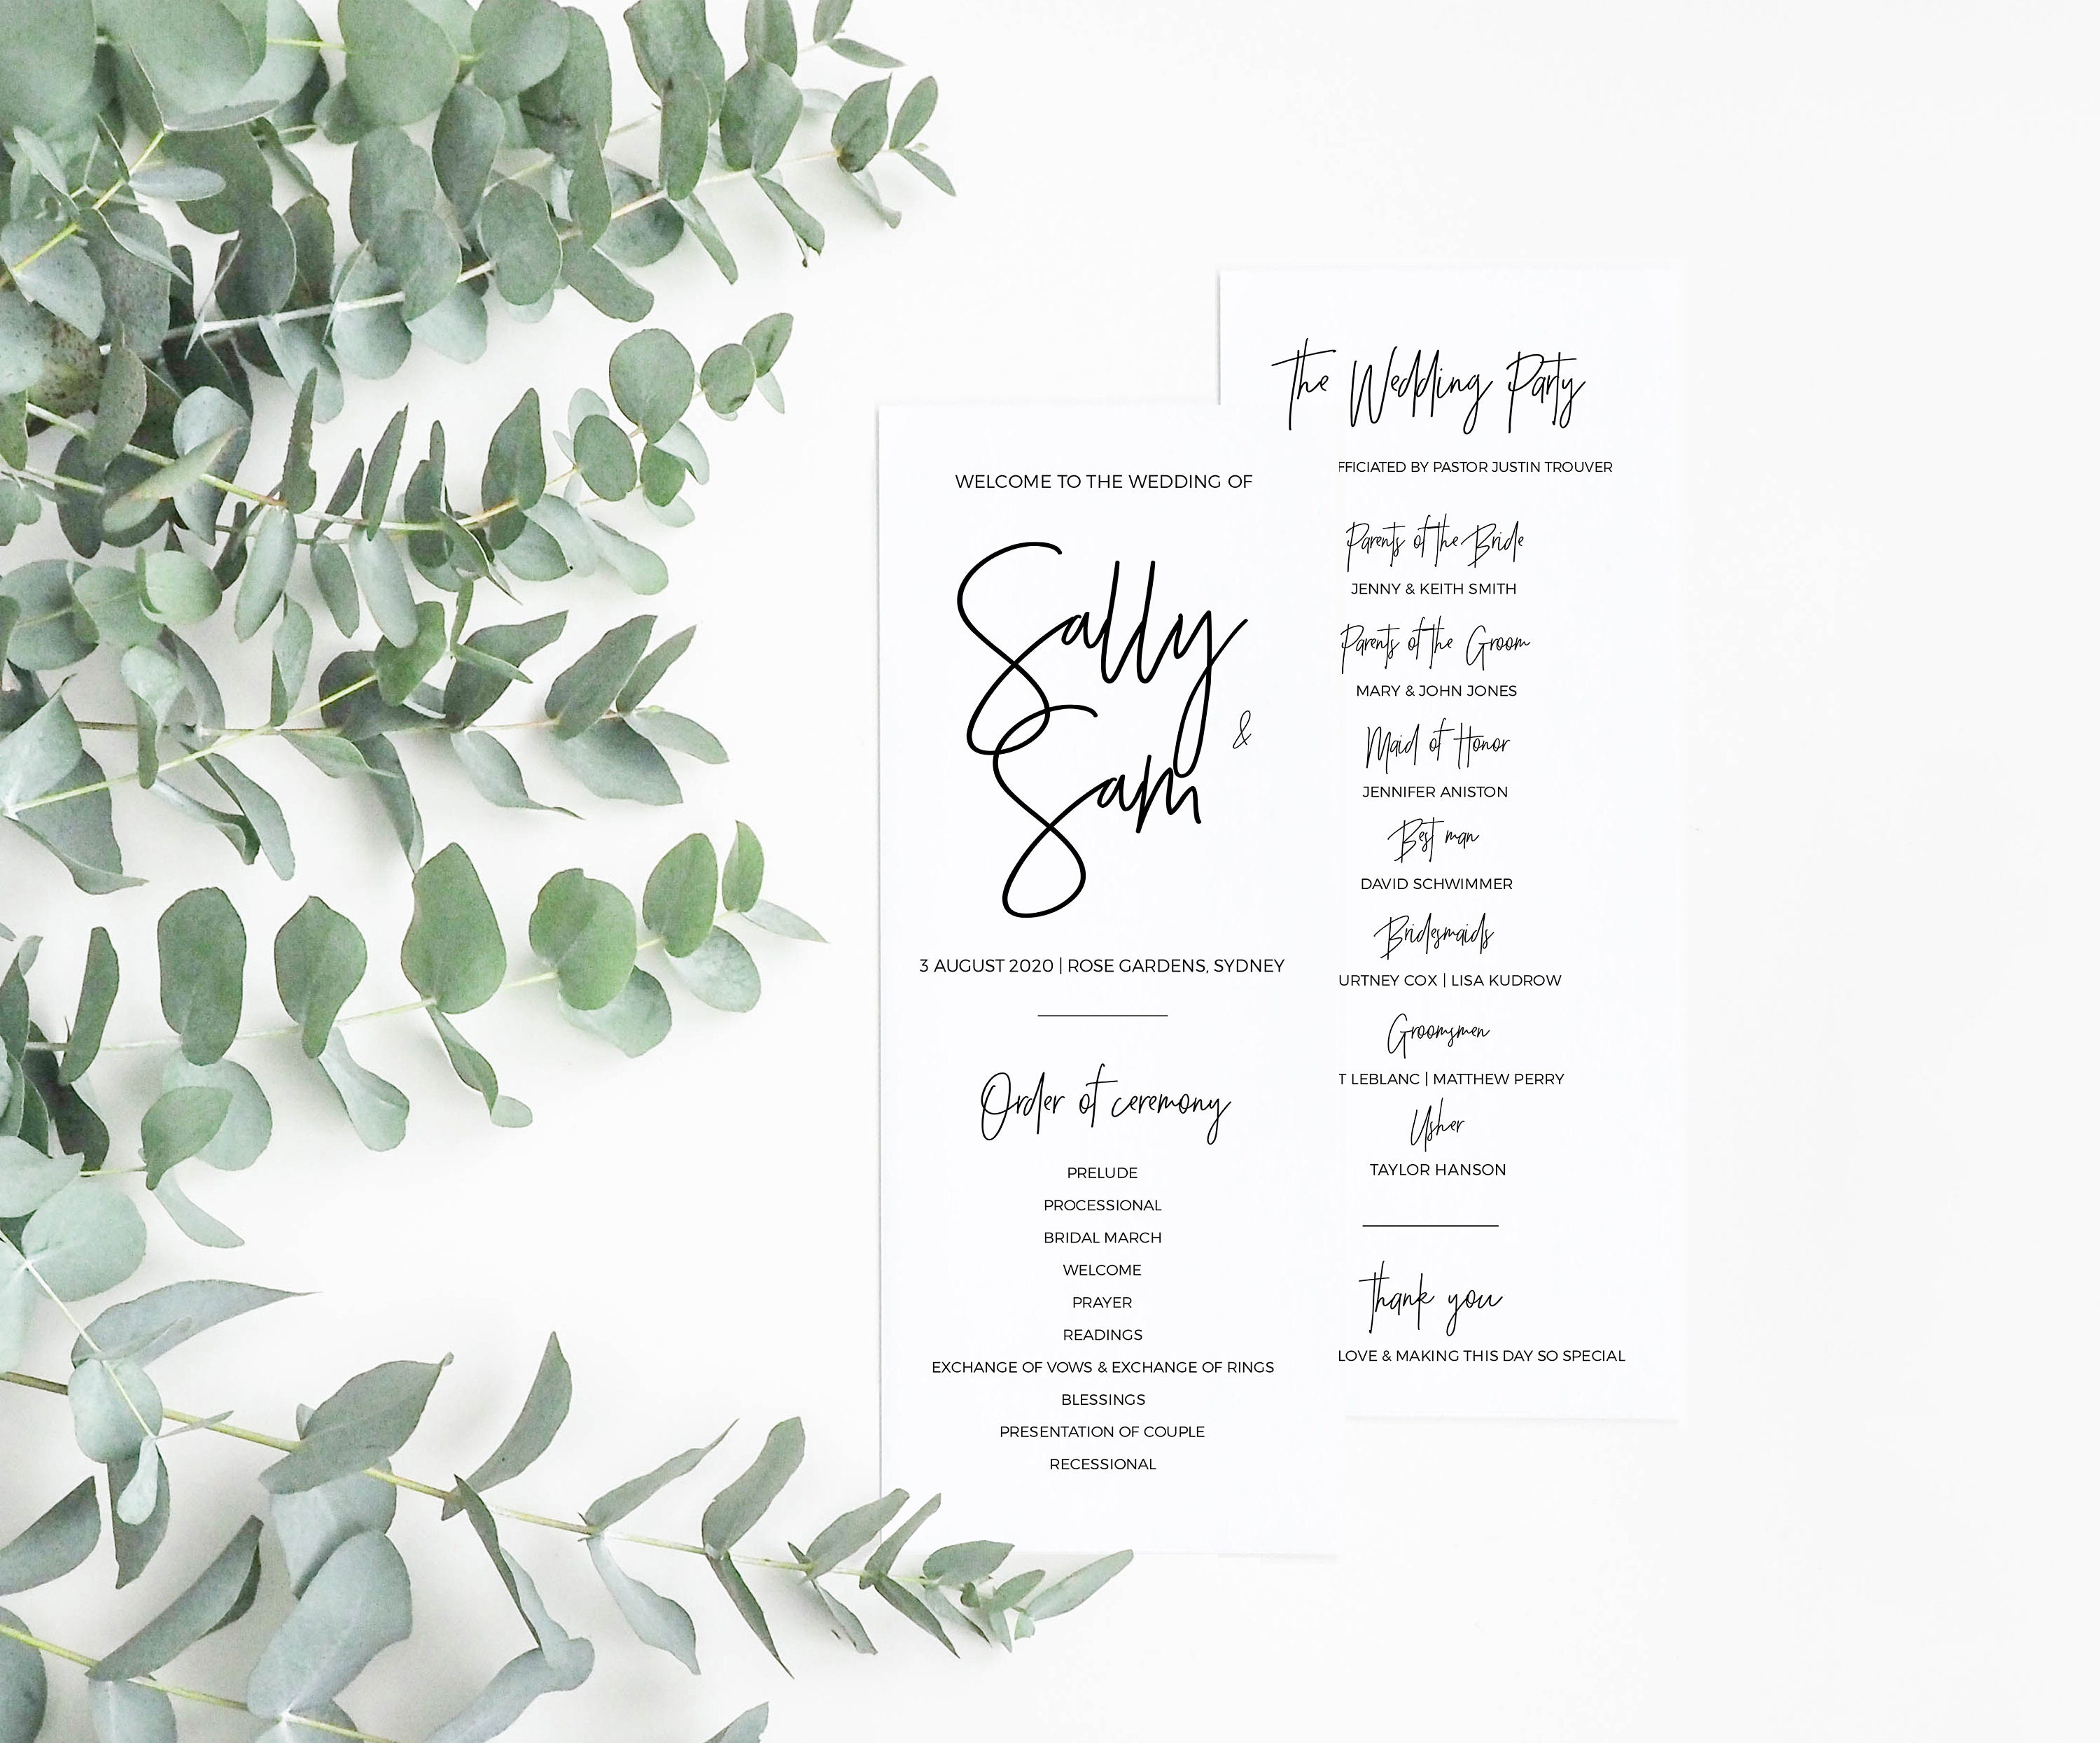 WELCOME TO THE WEDDING OF
Sally
&
Sam
3 AUGUST 2020 | ROSE GARDENS, SYDNEY
Order of ceremony
PRELUDE
PROCESSIONAL
BRIDAL MARCH
WELCOME
PRAYER
READINGS
EXCHANGE OF VOWS & EXCHANGE OF RINGS
BLESSINGS
PRESENTATION OF COUPLE
RECESSIONAL
The Wedding Party
FFICIATED BY PASTOR JUSTIN TROUVER
Parents of the Bride
JENNY & KEITH SMITH
Parents of the Groom
MARY & JOHN JONES
Maid of Honor
JENNIFER ANISTON
Best man
DAVID SCHWIMMER
Bridesmaids
URTNEY COX | LISA KUDROW
Groomsmen
T LEBLANC | MATTHEW PERRY
Usher
TAYLOR HANSON
Thank you
LOVE & MAKING THIS DAY SO SPECIAL